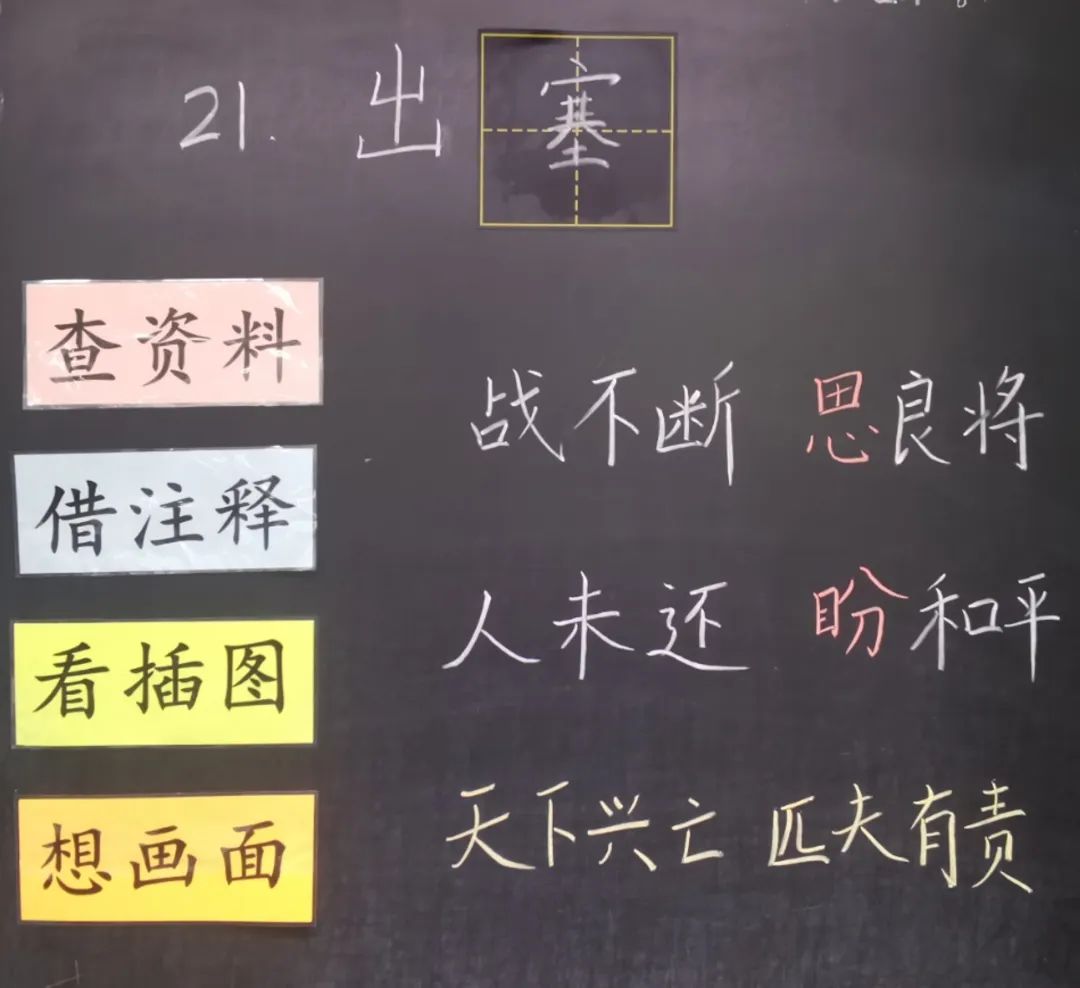 21. 出塞
查资料
借注释
看插图
想画面
战不断 思良将
人未还 盼和平
天下兴亡 匹夫有责